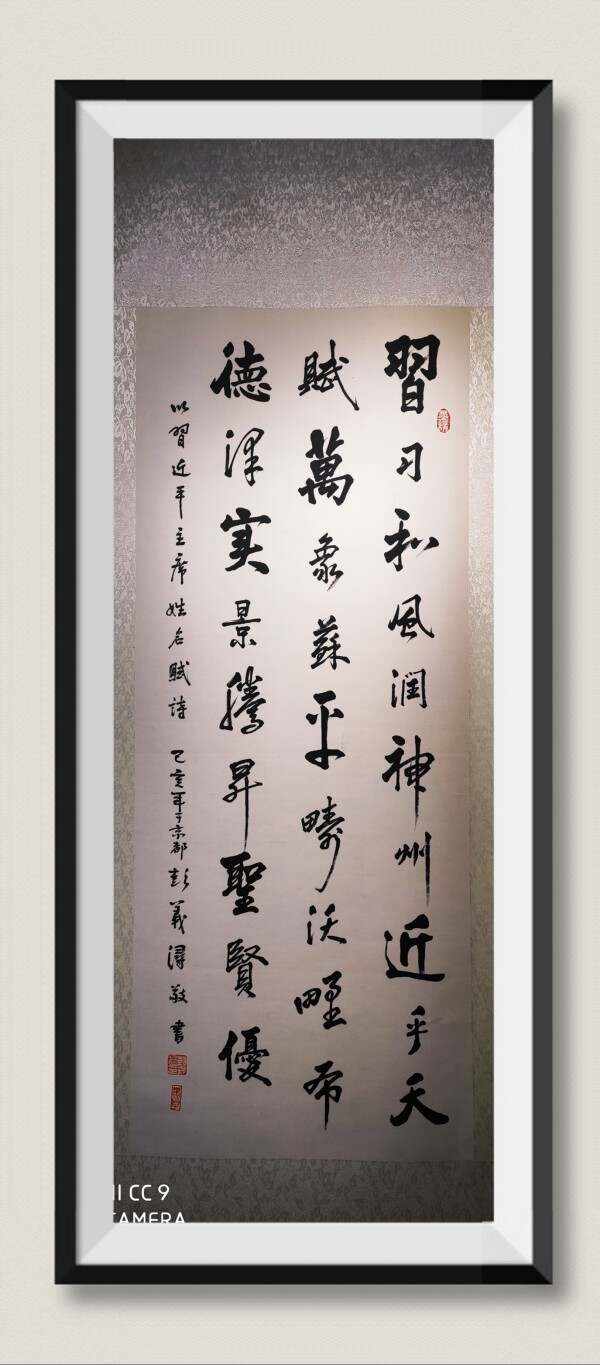 習习和风润神州近乎天
赋萬象蘇平疇沃野布
德泽实景腾昇聖賢優
以習近平主席姓名赋诗 己亥年于京都彭義浔敬書
II CC 9
CAMERA